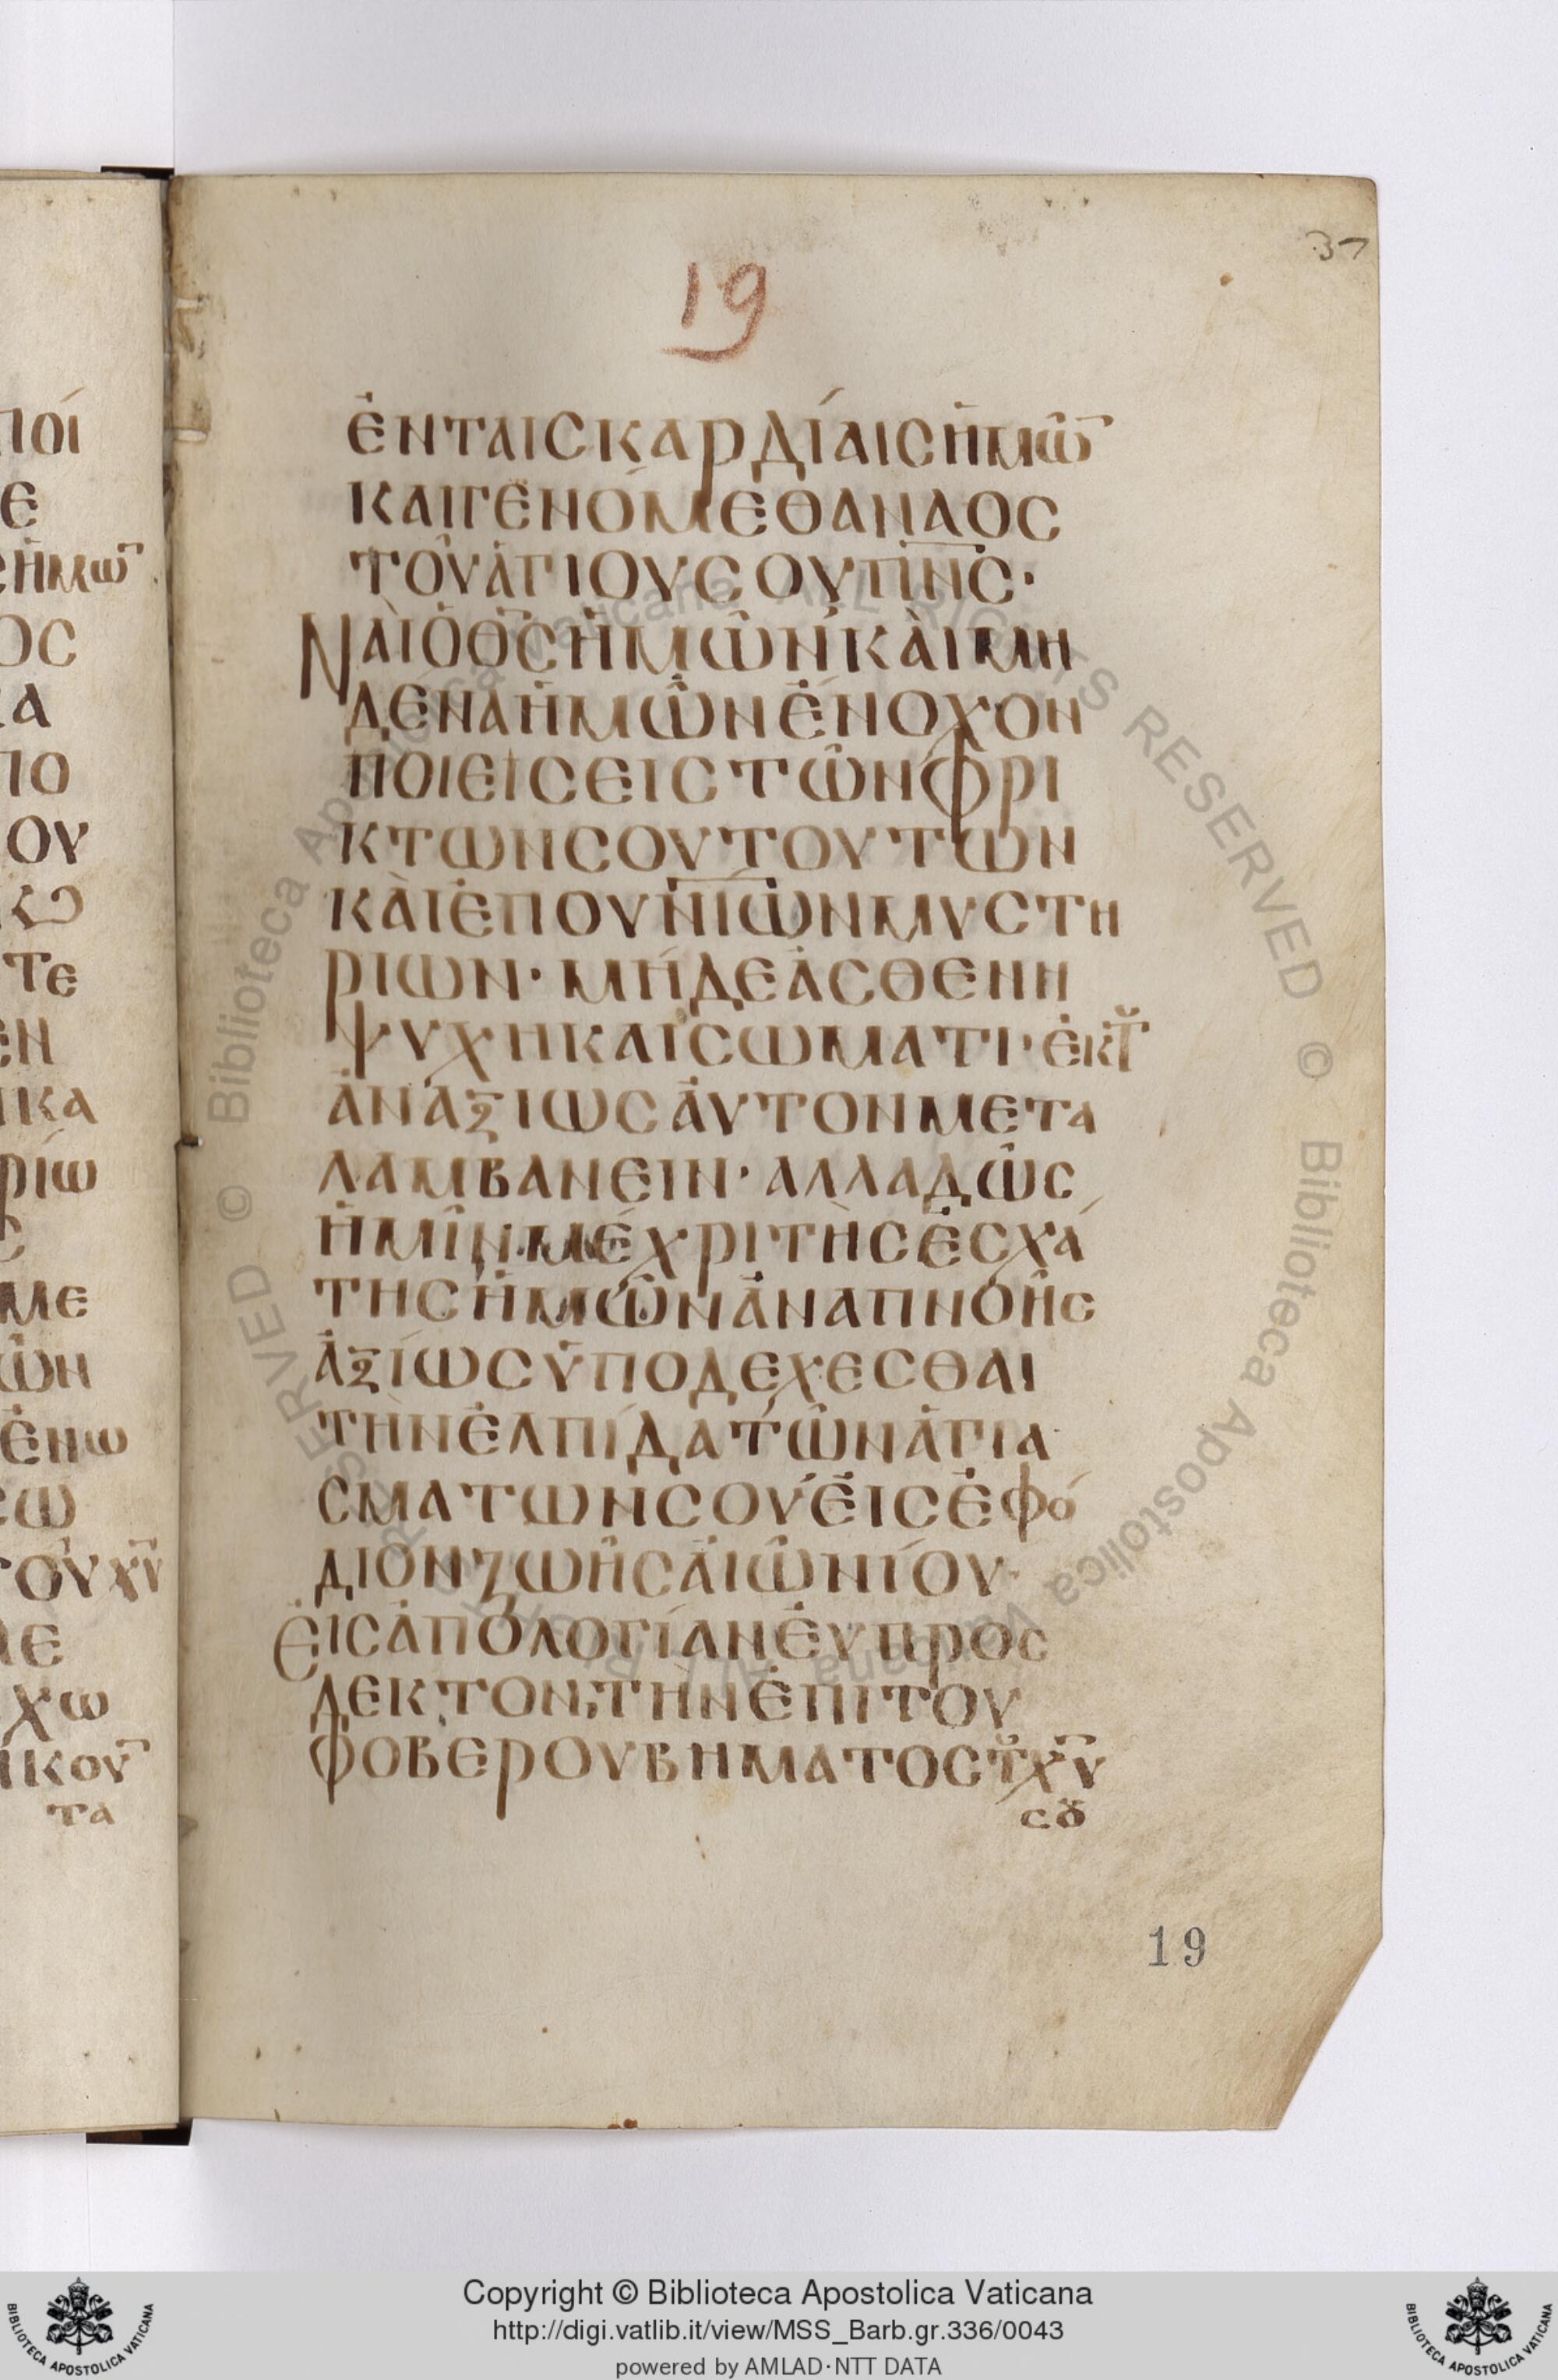 37
19
ἐΝΤΑΙCΚΑΡΔίΑΙCἡΜῶ
ΚΑΙΓΕΝόΜΕΘΑΝΑΟC
ΤΟῦἁΓΙΟΥCΟΥΠ̅Ν̅C̅·
ΝΑὶὁΘ̅C̅ἡΜῶΝΚΑὶΜΗ
ΔέΝΑἡΜῶΝἔΝΟΧΟΝ
ΠΟΙΕΙCΕΙCΤῶΝΦΡΙ
ΚΤΩΝCΟΥΤΟΥΤΩΝ
ΚΑὶἐΠΟΥΝ̅Ι̅ώΝΜΥCΤΗ
ΡΙΩΝ·ΜΗΔΕἀCΘΕΝΗ
ΨΥΧΗΚΑΙCΩΜΑΤΙ·ἐΚΤȣ
ἀΝΑΞΙΩCἀΥΤΟΝΜΕΤΑ
ΛΑΜΒΑΝΕΙΝ·ΑΛΛΑΔὼC
ἡΜῖΝΜέΧΡΙΤῆCἐCΧά
ΤΗCἡΜῶΝἀΝΑΠΝΟῆC
ἀΞίΩCὑΠΟΔΕΧΕCΘΑΙ
ΤὴΝἐΛΠίΔΑΤῶΝἁΓΙΑ
CΜΑΤΩΝCΟΥἐΙCἐΦό
ΔΙΟΝΖΩῆCἀΙΩΝίΟΥ·
ἐΙCἀΠΟΛΟΓίΑΝἐΥΠΡΟC
ΔΕΚΤΟΝ,ΤὴΝἐΠΙΤΟΥ
ΦΟΒΕΡΟΥΒΗΜΑΤΟCΤȣΧ̅Υ̅
Cȣ
19
Copyright © Biblioteca Apostolica Vaticana
http://digi.vatlib.it/view/MSS_Barb.gr.336/0043
powered by AMLAD·NTT DATA